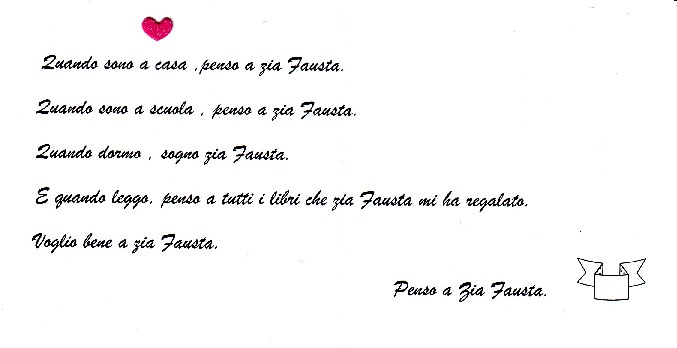 Quando sono a casa ,penso a zia Fausta.
Quando sono a scuola , penso a zia Fausta.
Quando dormo , sogno zia Fausta.
E quando leggo, penso a tutti i libri che zia Fausta mi ha regalato.
Voglio bene a zia Fausta.
Penso a Zia Fausta.